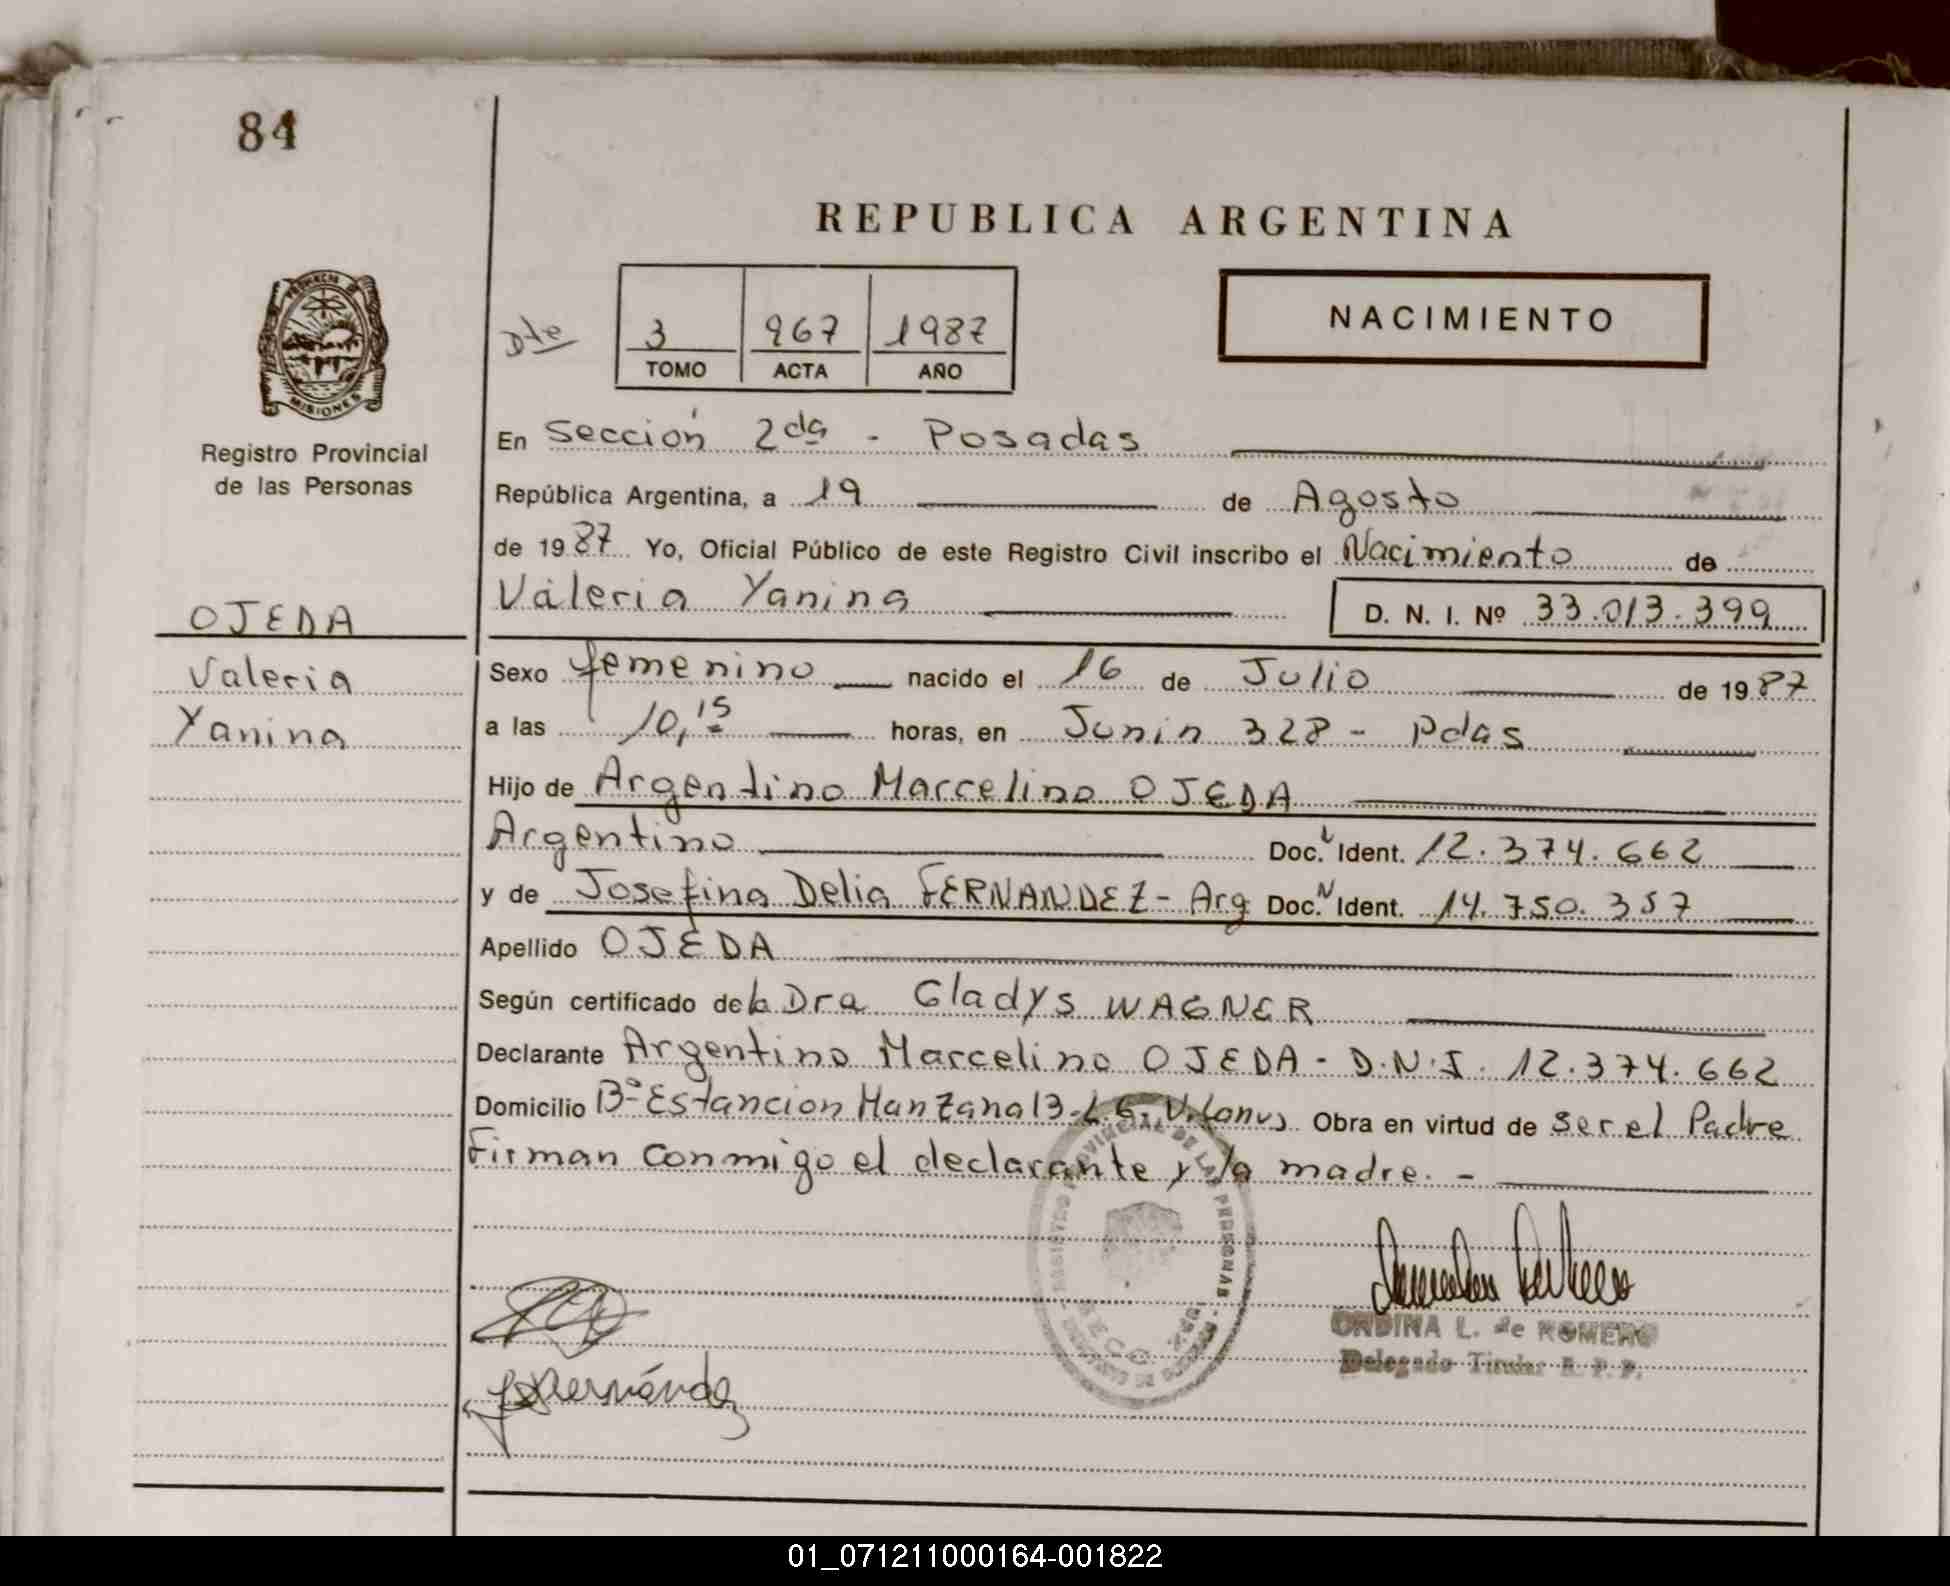 84
REPUBLICA ARGENTINA
PROVINCIA DE
MISIONES
Registro Provincial
de las Personas
Dte
3 967 1987
TOMO ACTA AÑO
NACIMIENTO
En Sección 2da - Posadas
República Argentina, a 19 de Agosto
de 1987 Yo, Oficial Público de este Registro Civil inscribo el Nacimiento de
Valeria Yanina D. N. I. Nº 33.013.399
OJEDA
Valeria
Yanina
Sexo femenino nacido el 16 de Julio de 1987
a las 10,15 horas, en Junin 328 - Pdas
Hijo de Argentino Marcelino OJEDA
Argentino Doc. Ident. 12.374.662
y de Josefina Delia FERNANDEZ - Arg Doc. N Ident. 14.750.357
Apellido OJEDA
Según certificado de la Dra Gladys WAGNER
Declarante Argentino Marcelino OJEDA - D.N.I. 12.374.662
Domicilio Bº Estancion Manzana 13 - L. 6. V. Lanus Obra en virtud de ser el Padre
Firman conmigo el declarante y la madre. -
REGISTRO PROVINCIAL DE LAS PERSONAS
ONDINA L. de ROMERO
Delegado Titular R. P. P.
Fernández
01_071211000164-001822